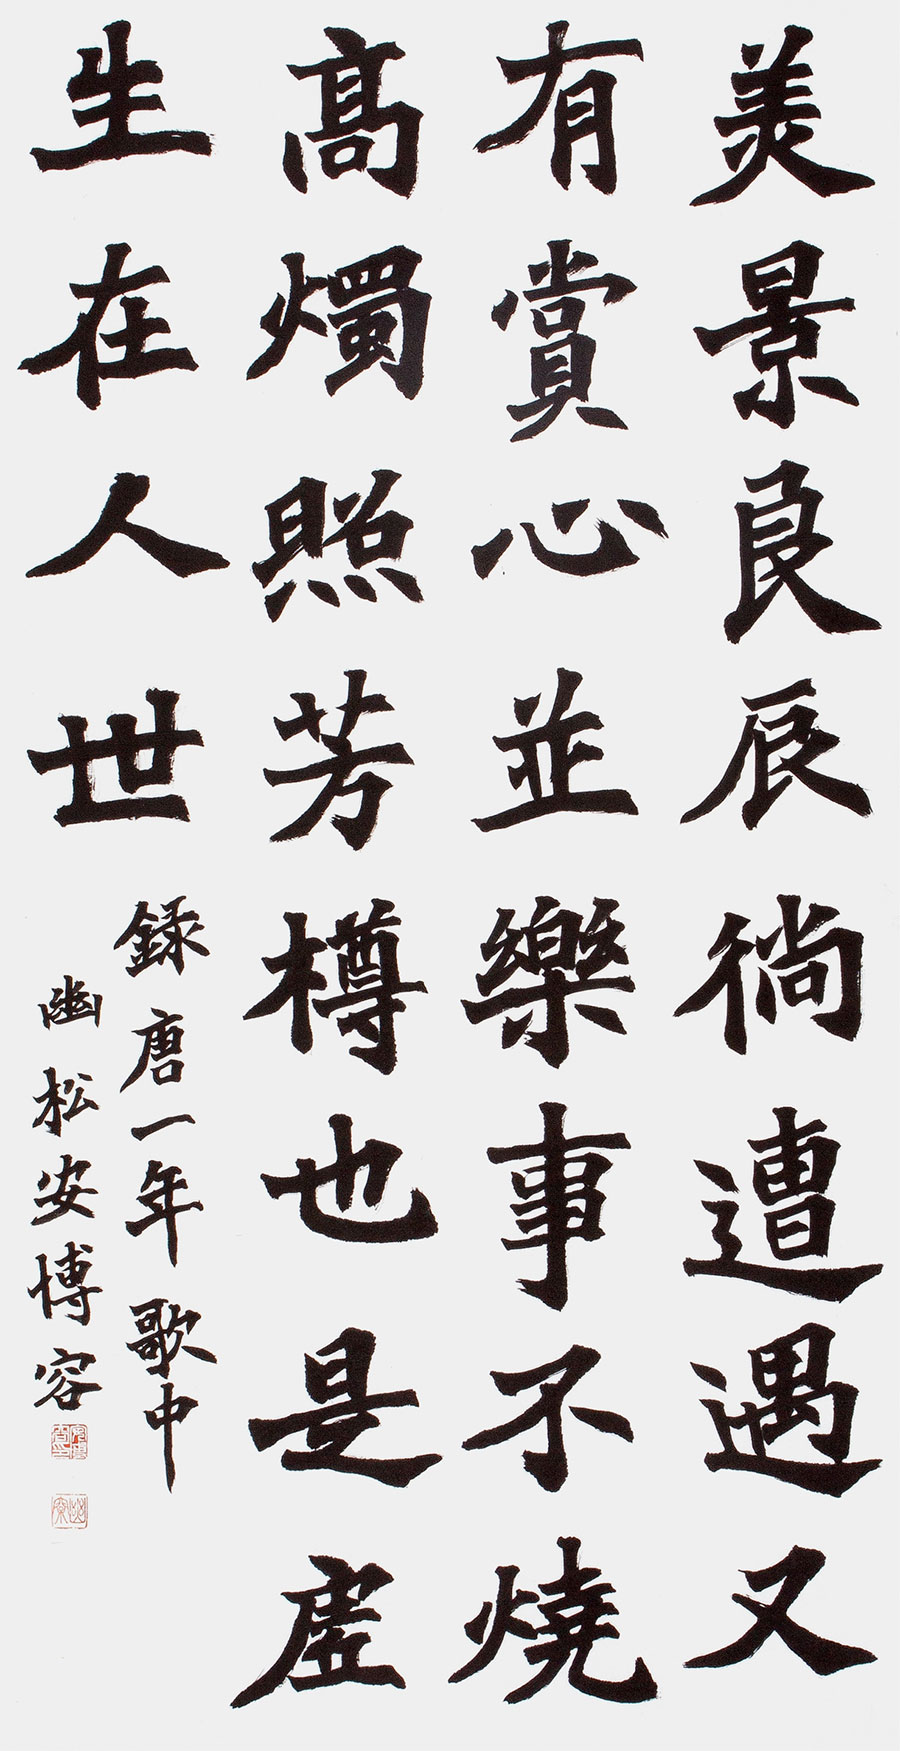 美景良辰徜遭遇又
有賞心並樂事不燒
高燭照芳樽也是虛
生在人世
録唐一年歌中
幽松安博容